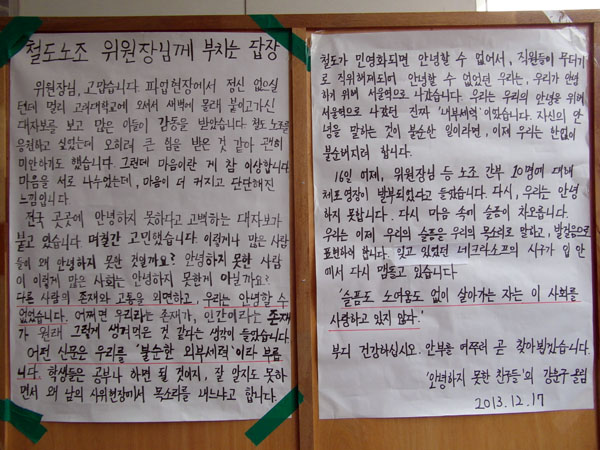 철도노조 위원장님께 부치는 답장
위원장님, 고맙습니다. 파업현장에서 정신 없으실
텐데 멀리 고려대학교에 오셔서 새벽에 몰래 붙이고가신
대자보를 보고 많은 이들이 감동을 받았습니다. 철도 노조를
응원하고 싶었는데 오히려 큰 힘을 받은 것 같아 괜히
미안하기도 했습니다. 그런데 마음이란 게 참 이상합니다.
마음을 서로 나누었는데, 마음이 더 커지고 단단해진
느낌입니다.
전국 곳곳에 안녕하지 못하다고 고백하는 대자보가
붙고 있습니다. 며칠간 고민했습니다. 이렇게나 많은 사람
들이 왜 안녕하지 못한 것일까요? 안녕하지 못한 사람
이 이렇게 많은 사회는 안녕하지 못한게 아닐까요?
다른 사람의 존재와 고통을 외면하고, 우리는 안녕할 수
없었습니다. 어쩌면 우리라는 존재가, 인간이라는 존재
가 원래 그렇게 생겨먹은 것 같다는 생각이 들었습니다.
어떤 신문은 우리를 '불순한 외부세력'이라 부릅
니다. 학생들은 공부나 하면 될 것이지, 잘 알지도 못하
면서 왜 남의 시위현장에서 목소리를 내느냐고 합니다.
철도가 민영화되면 안녕할 수 없어서, 직원들이 무더기
로 직위해제되며 안녕할 수 없었던 우리는, 우리가 안녕
하기 위해 서울역으로 나갔습니다. 우리는 우리의 안녕을 위해
서울역으로 나갔던 진짜 '내부세력'이었습니다. 자신의 안
녕을 말하는 것이 불순한 일이라면, 이제 우리는 한없이
불순해지려 합니다.
16일 어제, 위원장님 등 노조 간부 10명에 대해
체포영장이 발부되었다고 들었습니다. 다시, 우리는 안녕
하지 못합니다. 다시 마음 속에 슬픔이 차오릅니다.
우리는 이제 우리의 슬픔을 우리의 목소리로 말하고, 발걸음으로
표현하려 합니다. 잊고 있었던 네크라소프의 시구가 입 안
에서 다시 맴돌고 있습니다.
'슬픔도 노여움도 없이 살아가는 자는 이 사회를
사랑하고 있지 않다.'
부디 건강하십시오. 안부를 여쭈러 곧 찾아뵙겠습니다.
'안녕하지 못한 친구들'의 강훈구 올림
2013.12.17